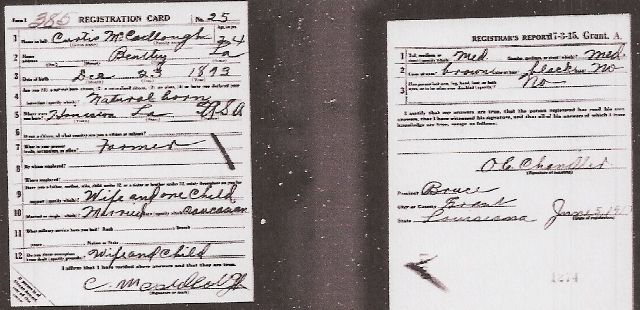 Form 1 385 REGISTRATION CARD No. 25
1 Name in full Curtis McCullough Age, in yrs. 24
2 Home address Bentley La
3 Date of birth Dec 23 1893
4 Natural born
5 Where were you born? La USA
6
7 What is your present trade, occupation, or office? Farmer
8 By whom employed?
Where employed?
9 Wife and one Child
10 Married or single (specify which)? Married Race (specify which)? Caucasian
11 What military service have you had? Rank Branch
years Nation or State
12 Do you claim exemption from draft (specify grounds)? Wife and Child
I affirm that I have verified above answers and that they are true.
REGISTRAR'S REPORT 17-3-15. Grant. A
1 Tall, medium, or short (specify which)? Med Slender, medium, or stout (which)? Med
2 Color of eyes? brown Color of hair? black Bald? No
3 No
I certify that my answers are true, that the person registered has read his own answers, that I have witnessed his signature, and that all of his answers of which I have knowledge are true, except as follows:
O.C. Chandler
(Signature of registrar)
Precinct Bouce
City or County Grant
State Louisiana June 5, 191
(Date of registration)